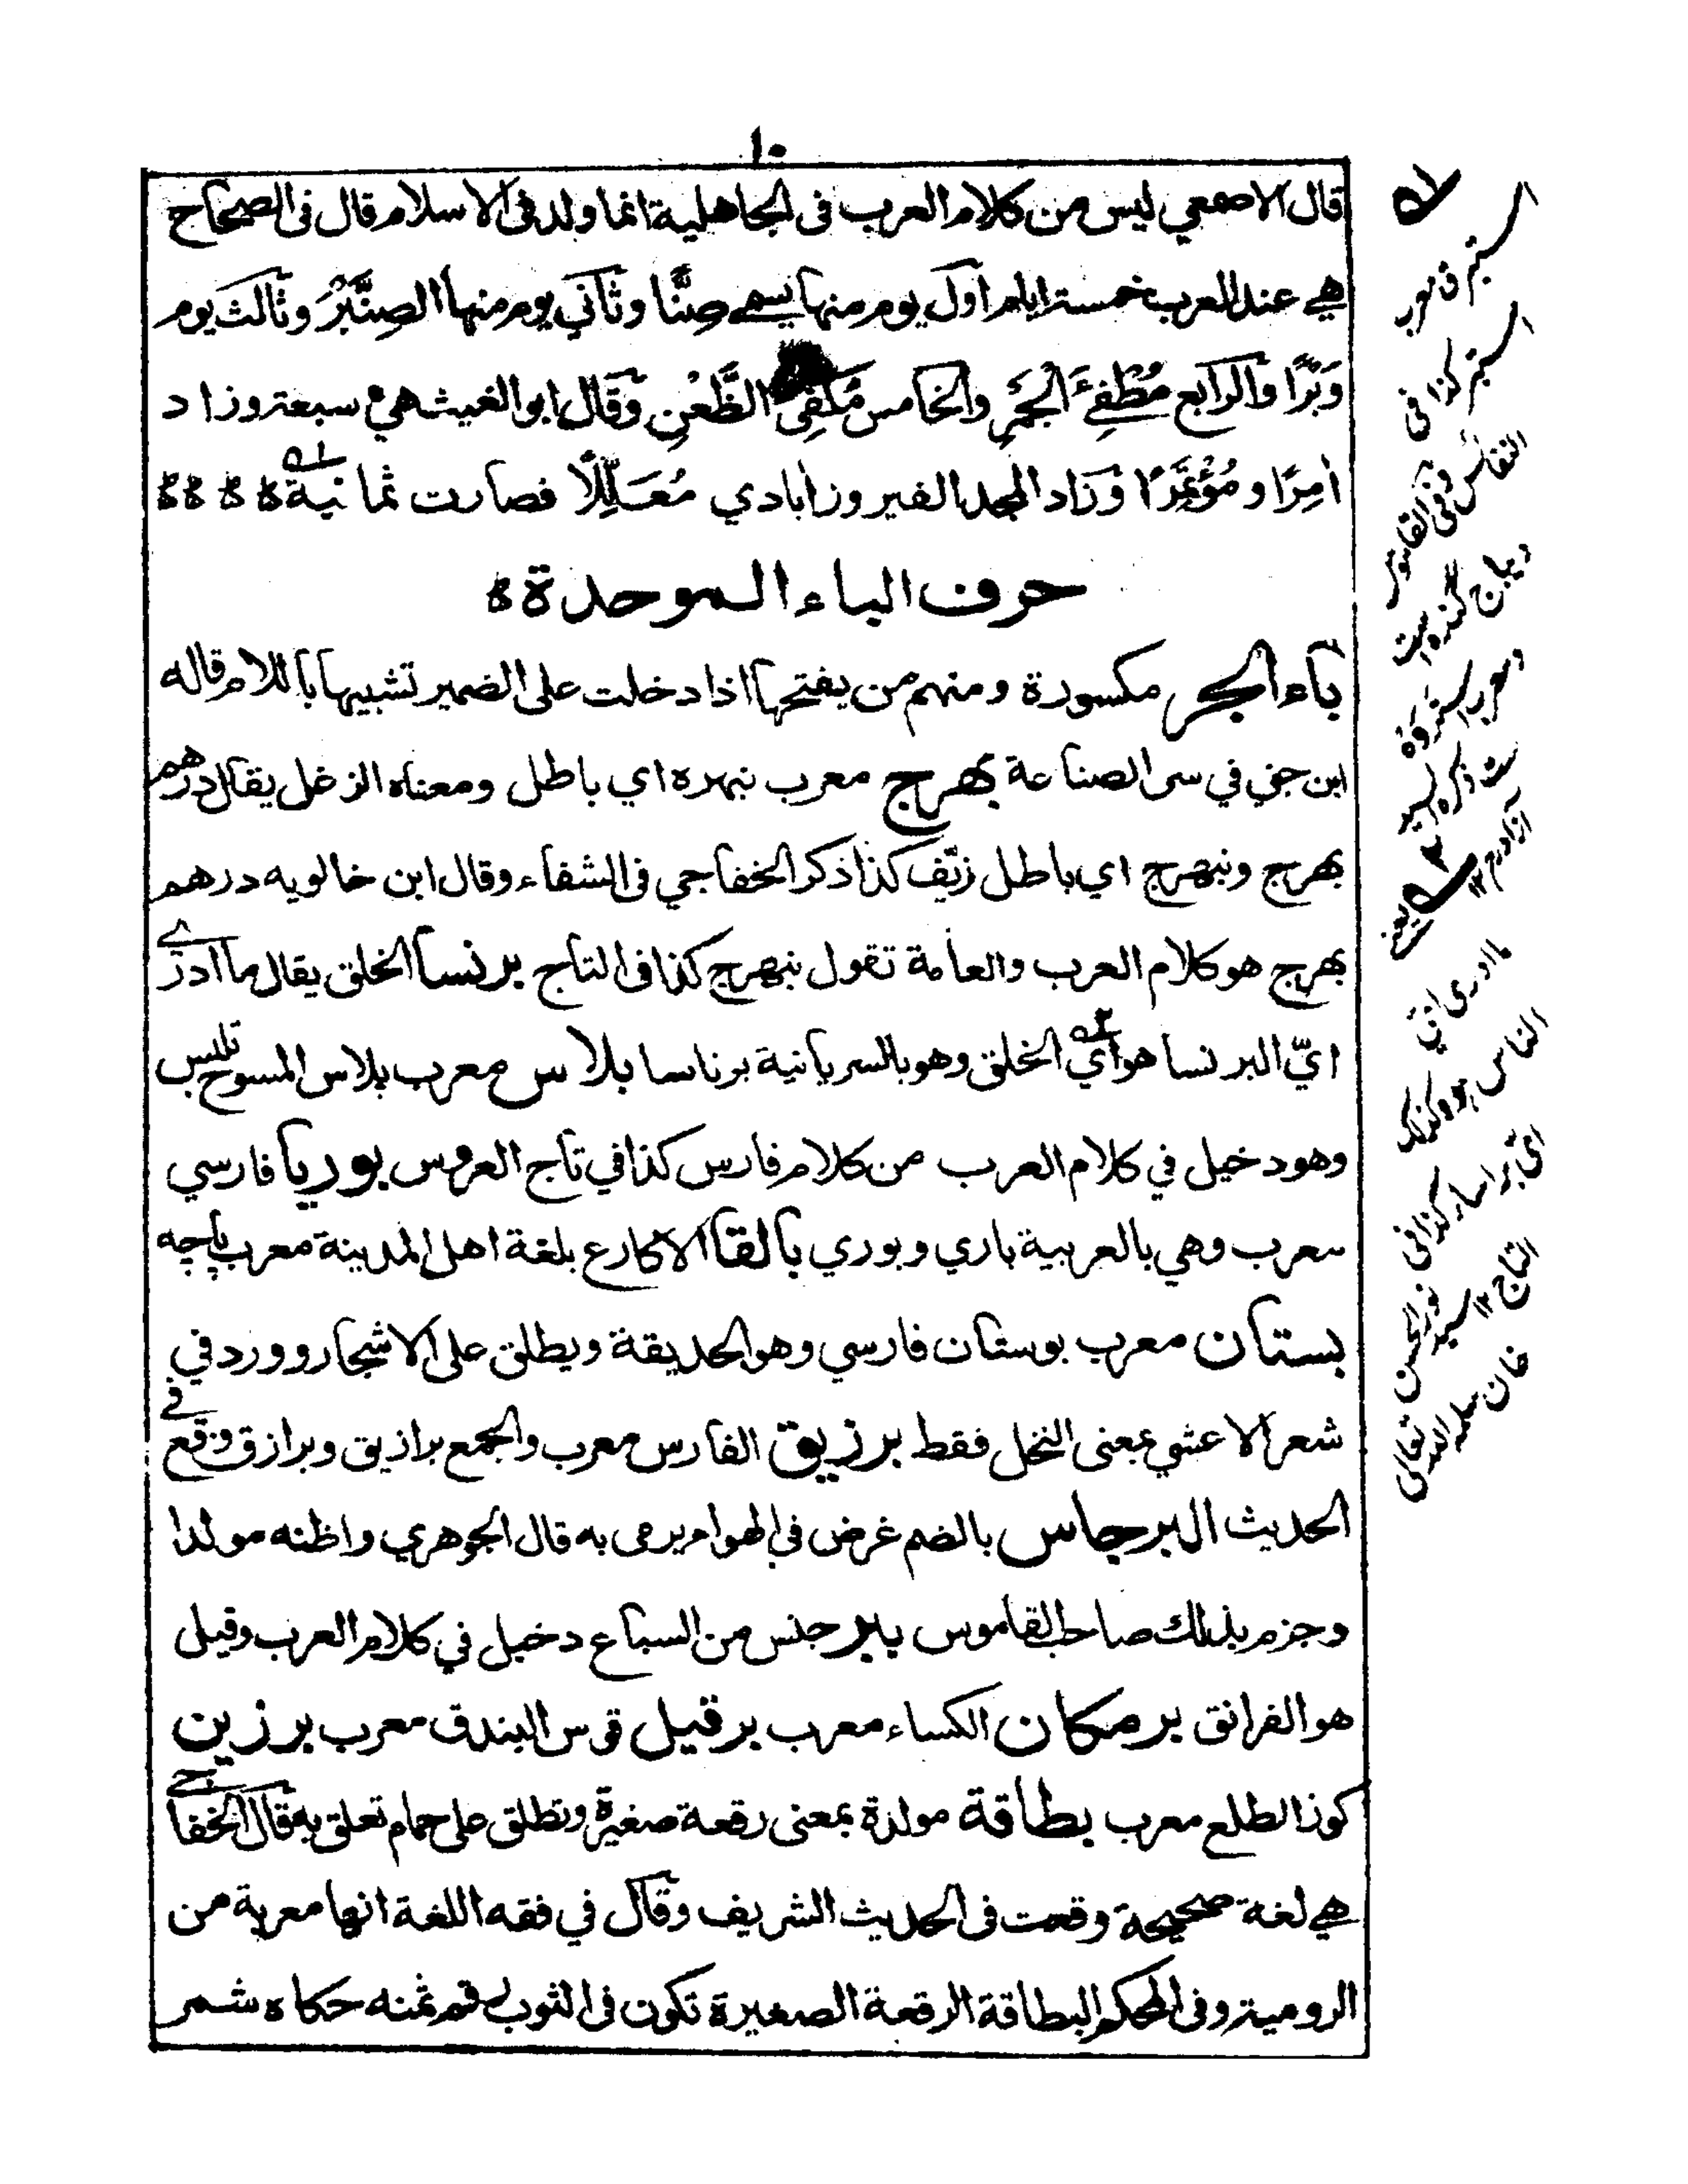 ١٠
قال الاصمعي ليس من كلام العرب فى الجاهلية انما ولد فى الاسلام قال فى الصحاح
هي عند العرب خمسة ايام اول يوم منها يسمى صِنًّا وثاني يوم منها الصِنَّبْرُ وثالث يوم
وَبْرًا والرابع مُطْفِئَ الْجَمْرِ والخامس مُكْفِئَ الظَّعْنِ وقال ابو الغيث هي سبعة وزاد
اٰمِرًا و مُؤْتَمِرًا وزاد المجد الفيروزابادي مُعَلِّلًا فصارت ثمانية ؀ ؀ ؀ ؀
حرف الباء الموحدة
باء الجر مكسورة ومنهم من يفتحها اذا دخلت على الضمير تشبيها باللام قاله
ابن جني في سر الصناعة بهرج معرب نبهره اي باطل ومعناه الزغل يقال درهم
بهرج ونبهرج اي باطل زيّف كذا ذكر الخفاجي فى الشفاء وقال ابن خالويه درهم
بهرج هو كلام العرب والعامة تقول نبهرج كذا فى التاج برنسا الخلق يقال ما ادرى
ايّ البرنسا هو اي الخلق وهو بالسريانية برناسا بلاس معرب پلاس المسوح تلبس
وهو دخيل في كلام العرب من كلام فارس كذا في تاج العروس بوريا فارسي
معرب وهي بالعربية باري وبوري بالقا الاكارع بلغة اهل المدينة معرب پاچه
بستان معرب بوستان فارسي وهو الحديقة ويطلق على الاشجار وورد في
شعر الاعشي بمعنى النخل فقط برزيق الفارس معرب والجمع برازيق وبرازق وقع في
الحديث البرجاس بالضم غرض في الهواء يرمى به قال الجوهري واظنه مولدا
وجزم بذلك صاحب القاموس ببر جنس من السباع دخيل في كلام العرب وقيل
هو الفرانق برمكان الكساء معرب برقيل قوس البندق معرب برزين
كوز الطلع معرب بطاقة مولدة بمعنى رقعة صغيرة وتطلق على حمام تعلق به قال الخفاجي
هي لغة صحيحة وقعت فى الحديث الشريف وقال في فقه اللغة انها معربة من
الرومية وفى المحكم البطاقة الرقعة الصغيرة تكون فى الثوب رقم ثمنه حكاه شمر
استبرق معرب
استبر كذا فى
النفائس وفى القاموس
ما ادرى اي
الناس هو وكذلك
اي برناساء كذا فى
التاج ١٢ سيد
نور الحسن
خان سلمه الله تعالى